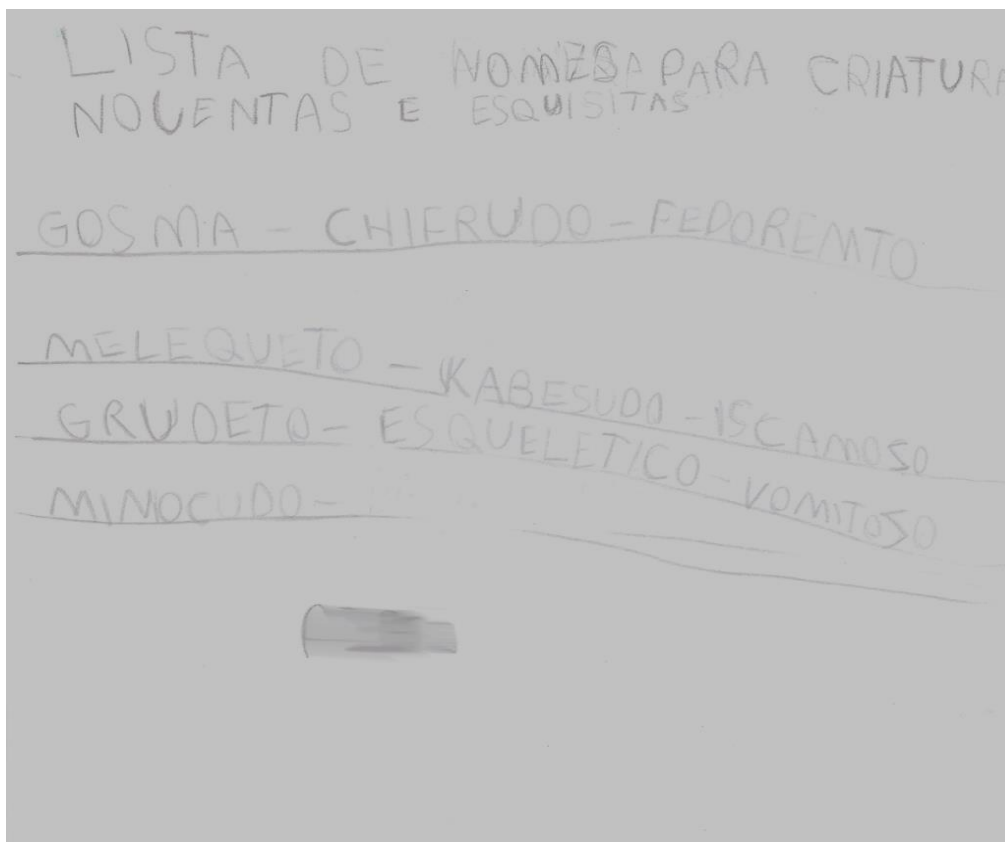 LISTA DE NOMESA PARA CRIATURA
NOUENTAS E ESQUISITAS
GOSMA - CHIFRUDO - FEDOREMTO
MELEQUETO - KABESUDO - ISCAMOSO
GRUDETO - ESQUELETICO - VOMITOSO
MINOCUDO -